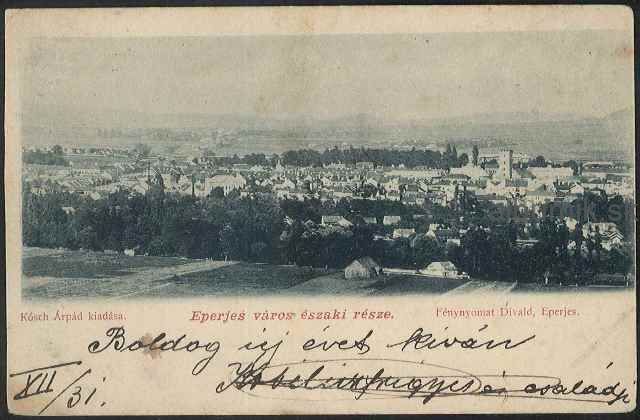 Kósch Árpád kiadása.
Eperjes város északi része.
Fénynyomat Divald, Eperjes.
Boldog uj évet kíván
XII/31.
és családja